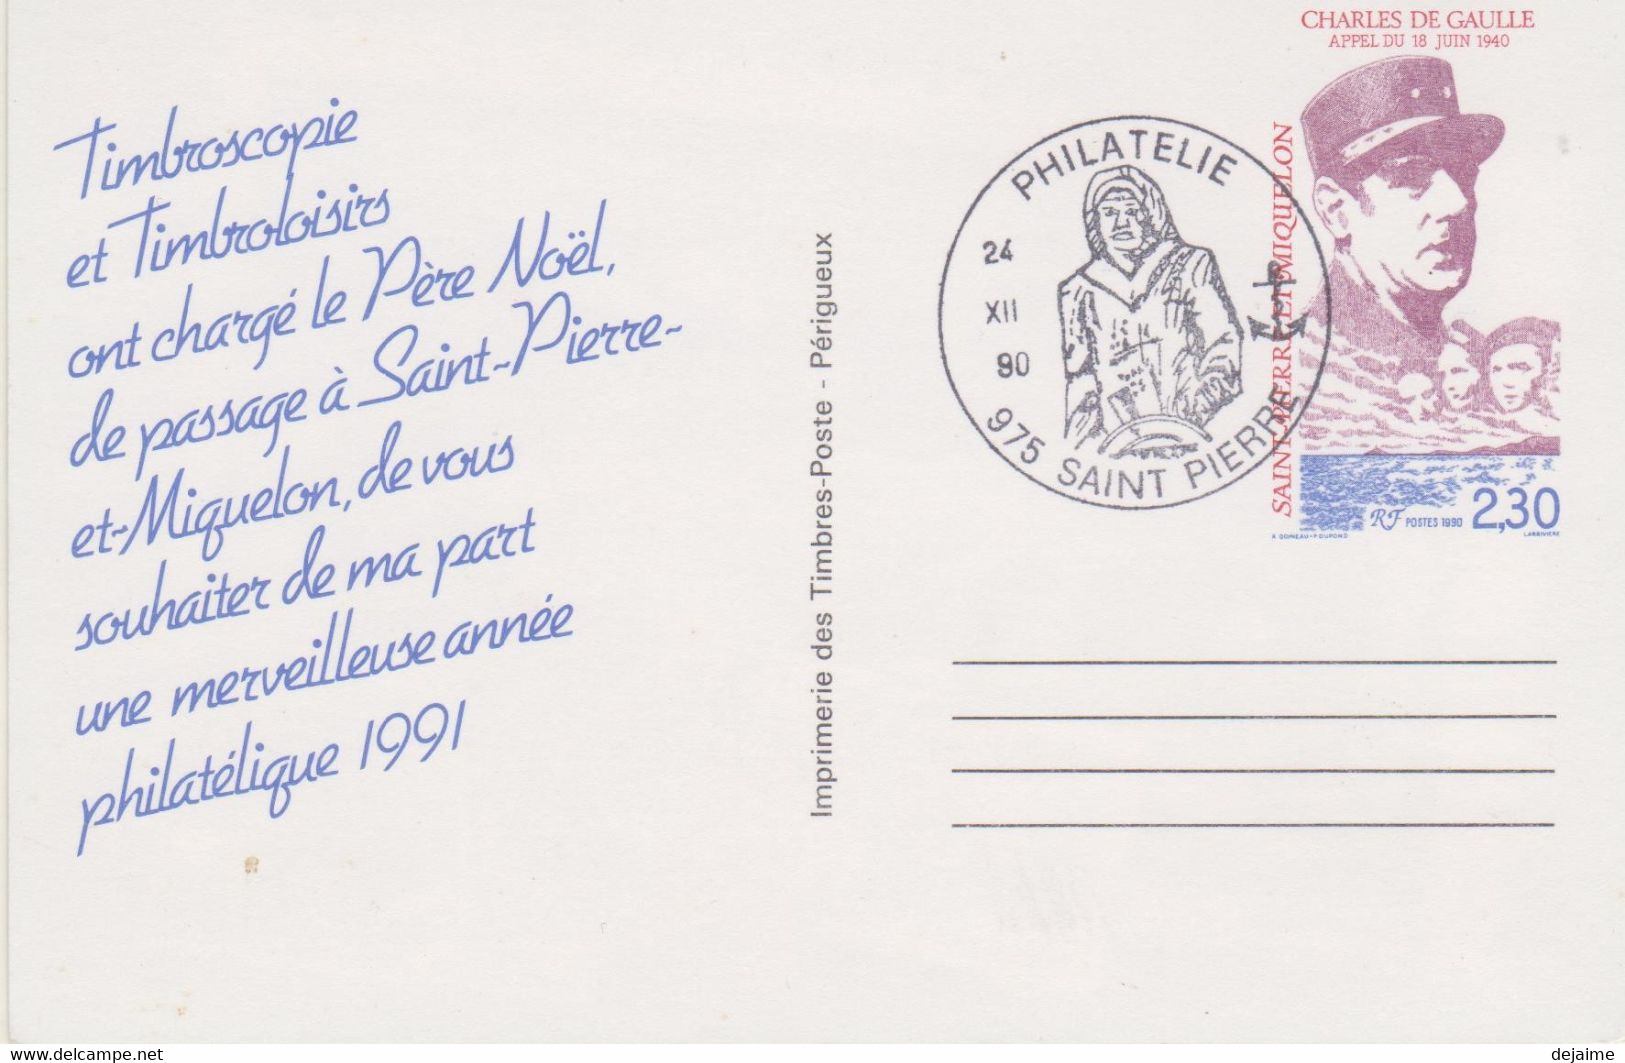 Timbroscopie
et Timbroloisirs
ont chargé le Père Noël,
de passage à Saint-Pierre-
et-Miquelon, de vous
souhaiter de ma part
une merveilleuse année
philatélique 1991
Imprimerie des Timbres-Poste - Périgueux
PHILATELIE
24
XII
90
975 SAINT PIERRE
CHARLES DE GAULLE
APPEL DU 18 JUIN 1940
SAINT-PIERRE-ET-MIQUELON
RF POSTES 1990 2,30
LARRIVIERE
www.delcampe.net
dejaime